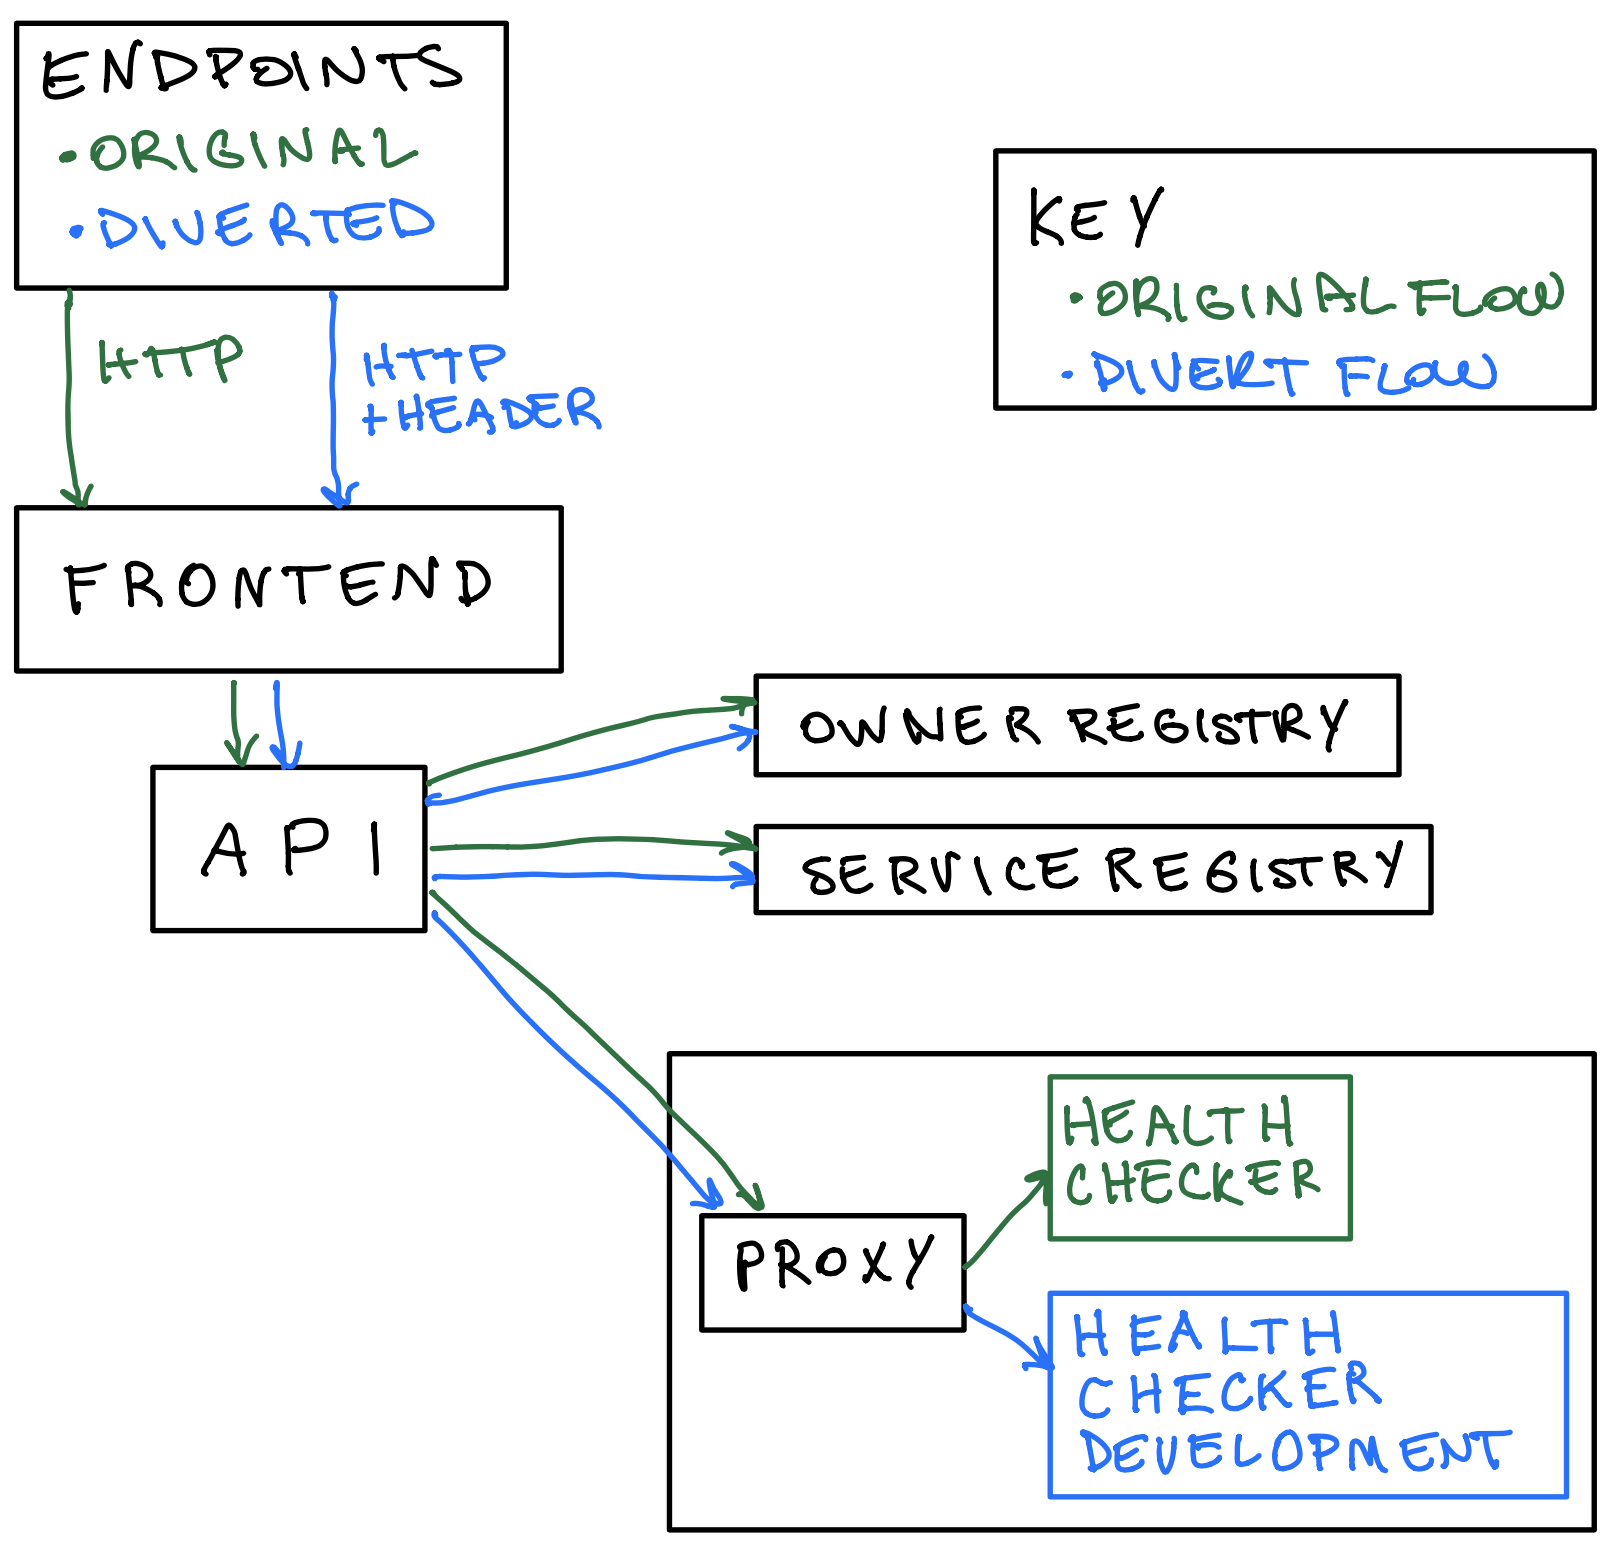 ENDPOINTS
• ORIGINAL
• DIVERTED
KEY
• ORIGINAL FLOW
• DIVERT FLOW
HTTP
HTTP
+HEADER
FRONTEND
API
OWNER REGISTRY
SERVICE REGISTRY
PROXY
HEALTH
CHECKER
HEALTH
CHECKER
DEVELOPMENT